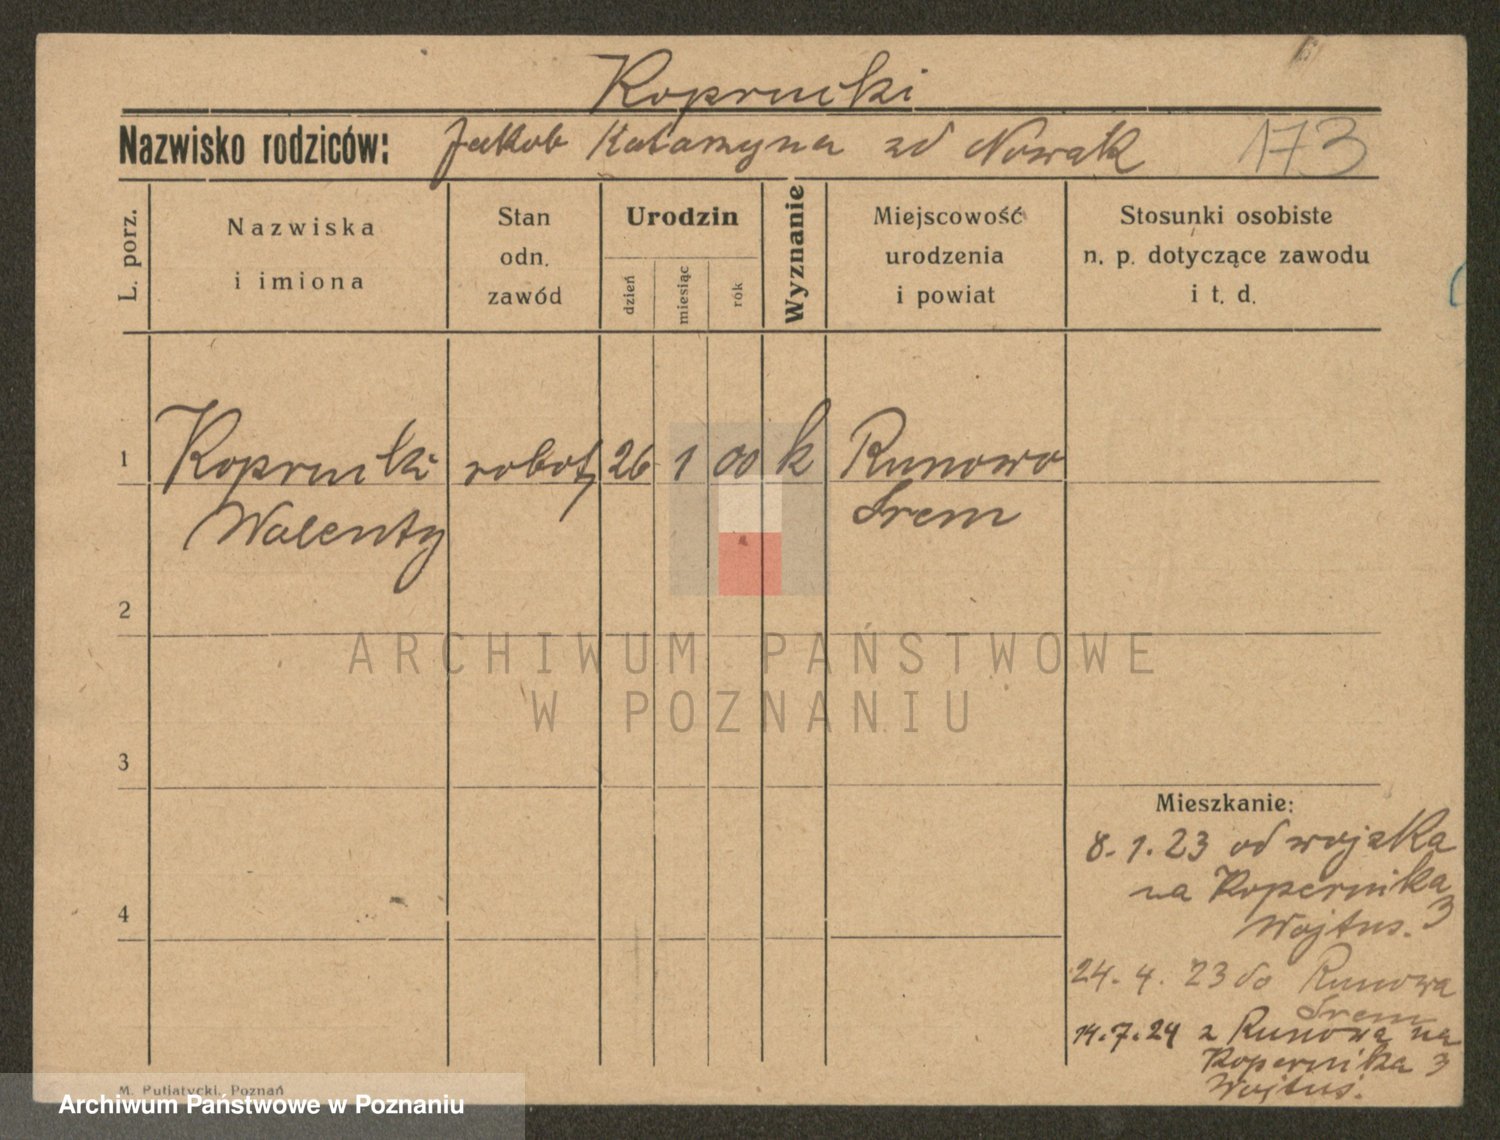 Koprucki
Nazwisko rodziców: Jakob Katarzyna zd Nowak 173
L. porz.
Nazwiska
i imiona
Stan
odn.
zawód
Urodzin
dzień
miesiąc
rok
Wyznanie
Miejscowość
urodzenia
i powiat
Stosunki osobiste
n. p. dotyczące zawodu
i t. d.
1 Koprucki robot, 26 1 00 k Runowo
Walenty Śrem
2
3
Mieszkanie:
8.1.23 od wojska
na Kopernika
Wojtus. 3
4
24.4.23 do Runowa
Śrem
14.7.24 z Runowa na
Kopernika 3
Wojtus.
M. Putiatycki, Poznań
ARCHIWUM PAŃSTWOWE
W POZNANIU
Archiwum Państwowe w Poznaniu